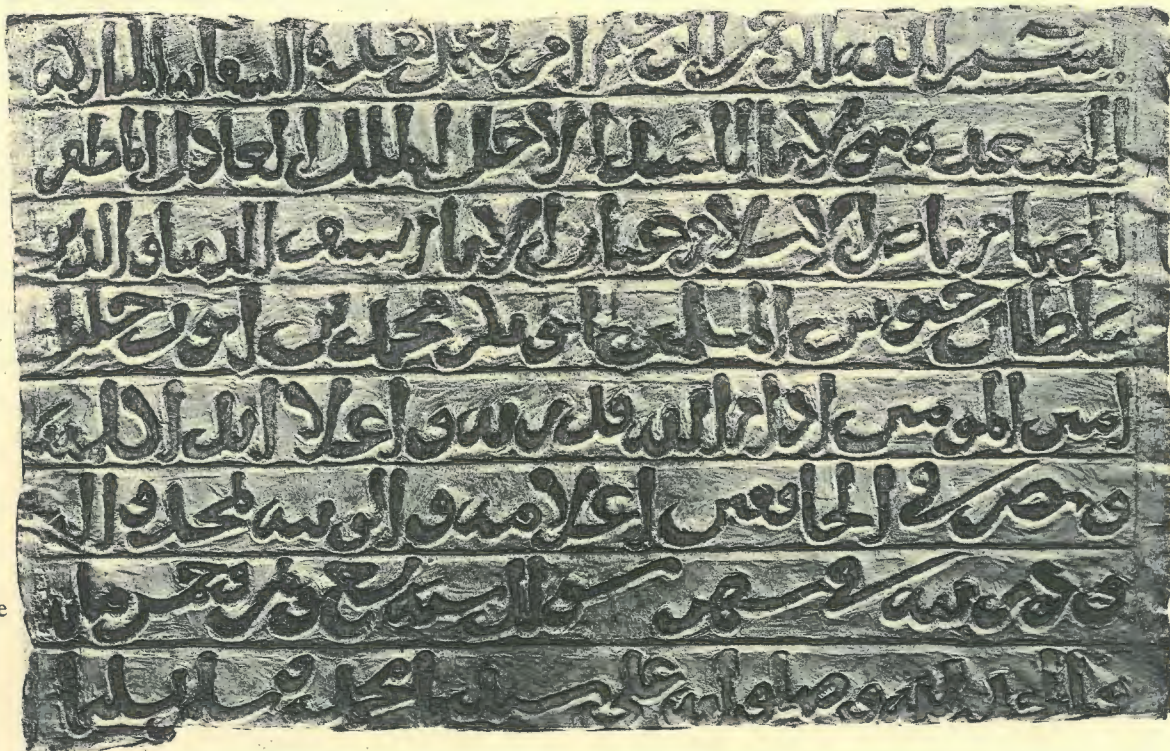 بسم الله الرحمن الرحيم امر بعمل هذه السقاية المباركة
السعيدة مولانا السيد الاجل الملك العادل المظفر
الهمام ناصر الاسلام جمال الانام سيف الدنيا والدين
سلطان جيوش المسلمين ابو بكر محمد بن ايوب خليل
امير المومنين ادام الله قدرته و اعلا ابدا كلمته
ونصر في الخافقين اعلامه و الويته بمحمد واله
وذريته في شهر شوال سنة وخمس ماية
والحمد لله وصلواته على سيدنا محمد
e